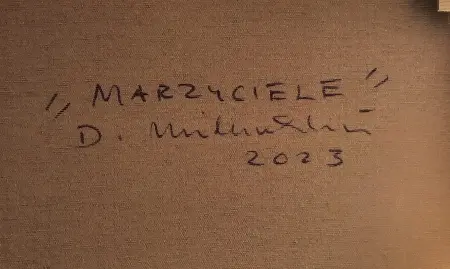 „MARZYCIELE”
D.
2023